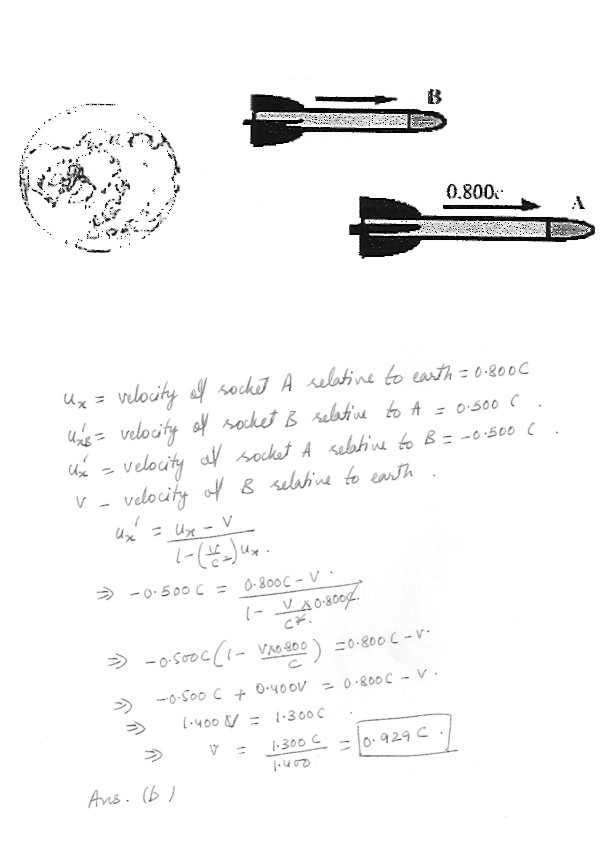 B
0.800c
A
uₓ = velocity of rocket A relative to earth = 0.800C
u'ₓB = velocity of rocket B relative to A = 0.500 C.
u'ₓ = velocity of rocket A relative to B = -0.500 C.
V - velocity of B relative to earth.
uₓ' = uₓ - V / 1-(V/C²)uₓ.
⇒ -0.500 C = 0.800C - V. / 1 - V × 0.800C/C².
⇒ -0.500C (1 - V×0.800/C) = 0.800 C - V.
⇒ -0.500 C + 0.400V = 0.800C - V.
⇒ 1.400 V = 1.300C.
⇒ V = 1.300 C/1.400 = 0.929 C.
Ans. (b)